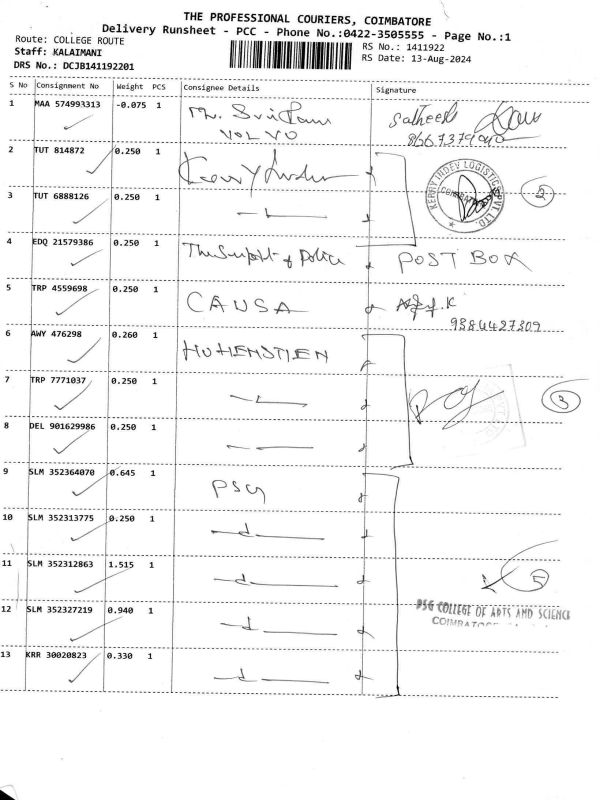 THE PROFESSIONAL COURIERS, COIMBATORE
Delivery Runsheet - PCC - Phone No.:0422-3505555 - Page No.:1
Route: COLLEGE ROUTE
RS No.: 1411922
Staff: KALAIMANI
RS Date: 13-Aug-2024
DRS No.: DCJB141192201
S No Consignment No Weight PCS Consignee Details Signature
1 MAA 574993313 -0.075 1
VOLVO
Satheesh
2 TUT 814872 0.250 1
KERRY INDEV LOGISTICS PVT. LTD.
2
3 TUT 6888126 0.250 1
4 EDQ 21579386 0.250 1 POST BOX
5 TRP 4559698 0.250 1 CAUSA
9384427309
6 AWY 476298 0.260 1 HOHENSTIEN
7 TRP 7771037 0.250 1
3
8 DEL 901629986 0.250 1
9 SLM 352364070 0.645 1 PSG
10 SLM 352313775 0.250 1
11 SLM 352312863 1.515 1
5
12 SLM 352327219 0.940 1
PSG COLLEGE OF ARTS AND SCIENCE
13 KRR 30020823 0.330 1